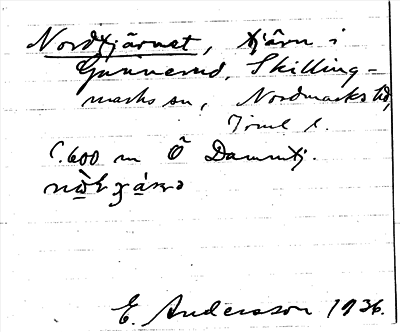 Nordtjärnet, tjärn i
Gunnerud, Skilling-
marks sn, Nordmarks hd,
Jrml l.
C. 600 m Ö Dammtj.
E. Andersson 1936.